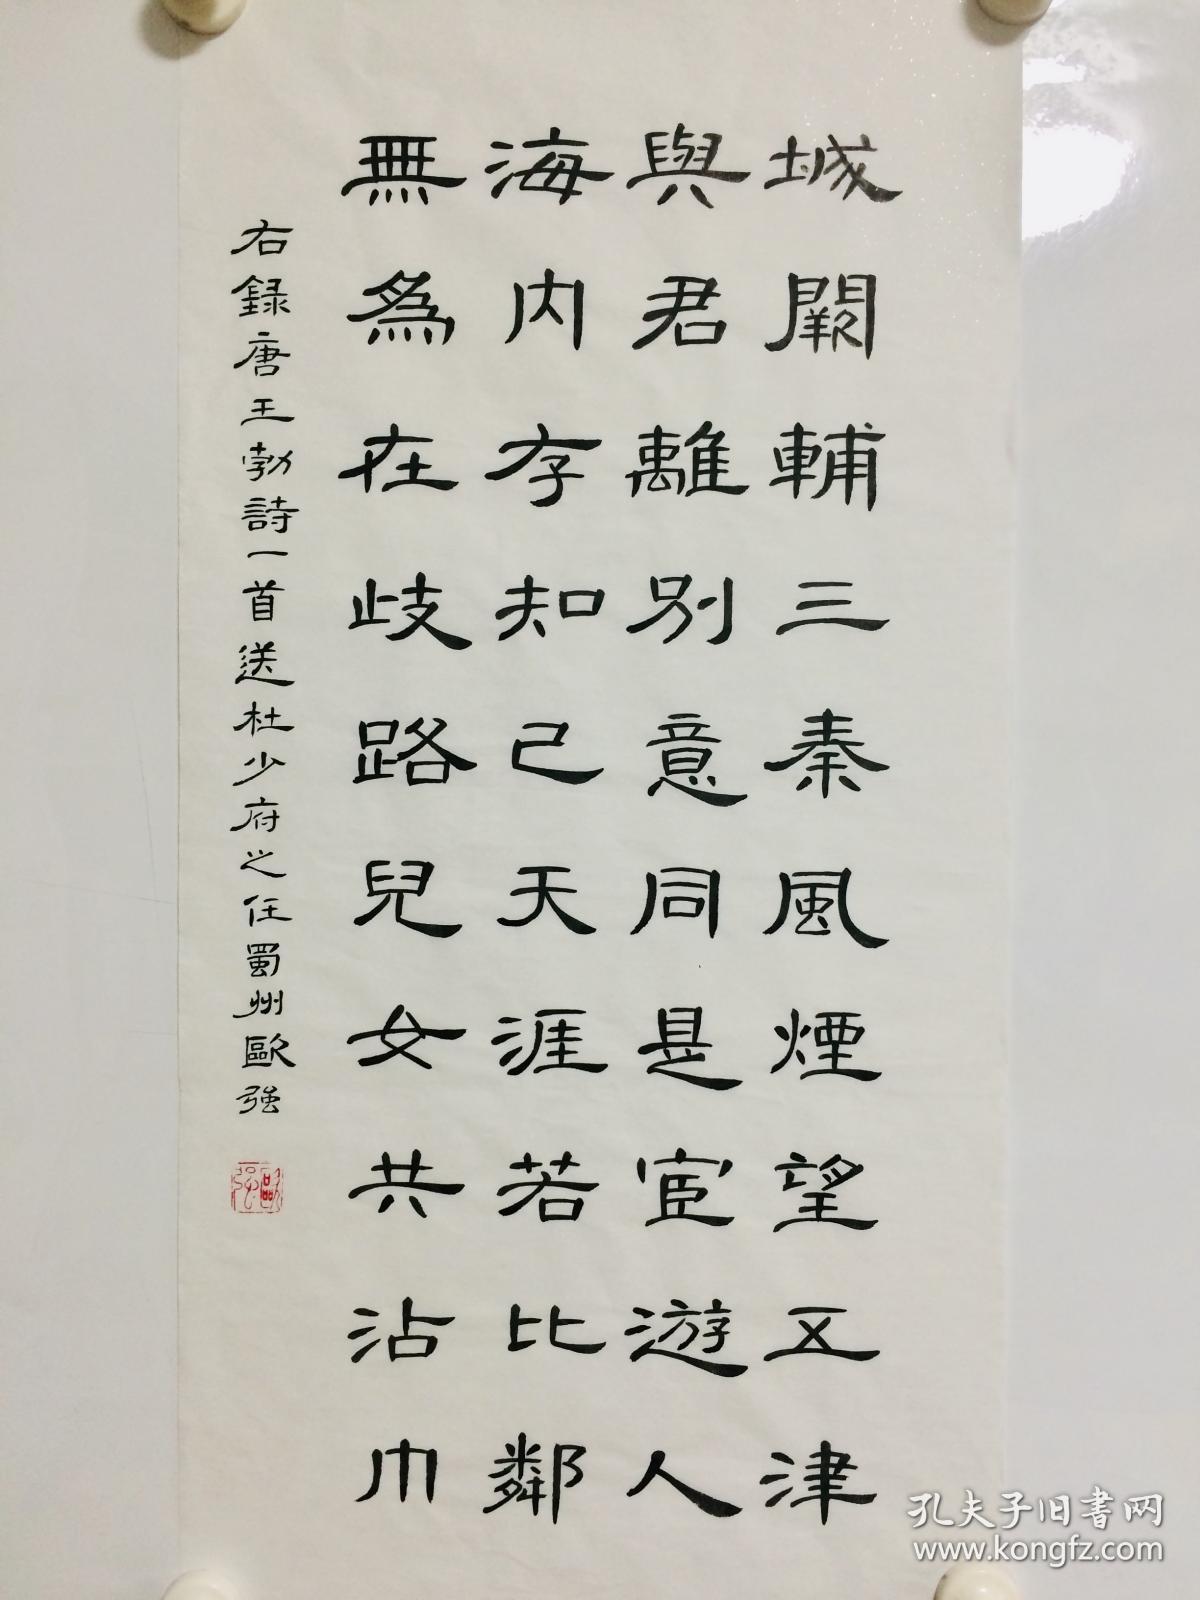 城闕輔三秦風煙望五津
與君離別意同是宦遊人
海内存知己天涯若比鄰
無為在歧路兒女共沾巾
右録唐王勃詩一首送杜少府之任蜀州歐强
歐强
孔夫子旧書网
www.kongfz.com